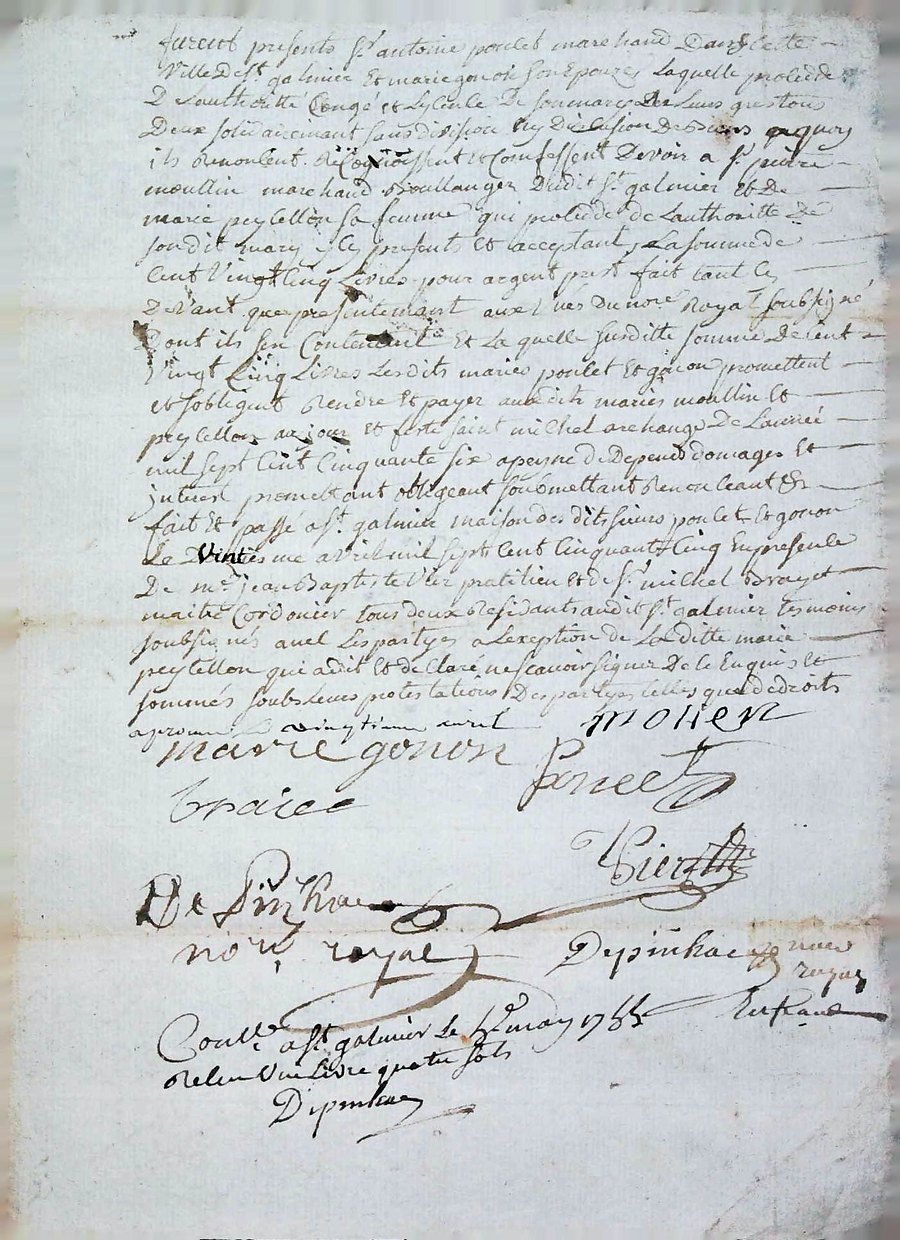 furent presents Sr antoine poulet marchand Dans cette
Ville de St galmier Et marie gonon son Epouze Laquelle procedde
De Lauthoritté Congé et Licence De son mary De Lurs gres tous
Deux solidairement sans division ny Discution De biens a quoy
ils Renoncent Recognoissent et Comfessent Devoir a Sr pierre
moullin marchand Boullanger Dudit St galmier Et De
marie peytellon sa femme qui procedde de Lauthoritte De
son dit mary icy presents et acceptant, La somme de
Cent Vingt Cinq Livres pour argent prest fait tant Cy
Devant que presentement aux Vües Du nore Royal soubsigné
Dont ils sen Contentent Et La quelle susditte somme De Cent
Vingt Cinq Livres Lesdits mariés poulet Et gonon promettent
et sobligent Rendre Et payer aux dits mariés moullin Et
peytellon au jour Et feste saint michel archange De Lanneé
mil sept Cent Cinquante six a peyne de Depens domages Et
interest promettant obligeant soubmettant Renonceant &
fait Et passé a St galmier maison des dits sieurs poulet Et gonon
Le Vintiesme avril mil sept Cent Cinquante Cinq En presence
De me jean Baptiste pratitien et de Sr michel Brayet
maitre Cordonier tous deux Residants audit St galmier temoins
soubsignés avec Les partyes a Lexeption de La ditte marie
peytellon qui a dit Et de Claré ne scavoir signer De ce Enquis Et
sommés soubs Leurs protestations Des partyes telles que de droits
vingtieme avril
molien
marie gonon
De Pinhac
nore royal
Depinhac nore
royal
Conlle a St galmier Le may 1755
Receu Une Livre quatre sols
Depinhac